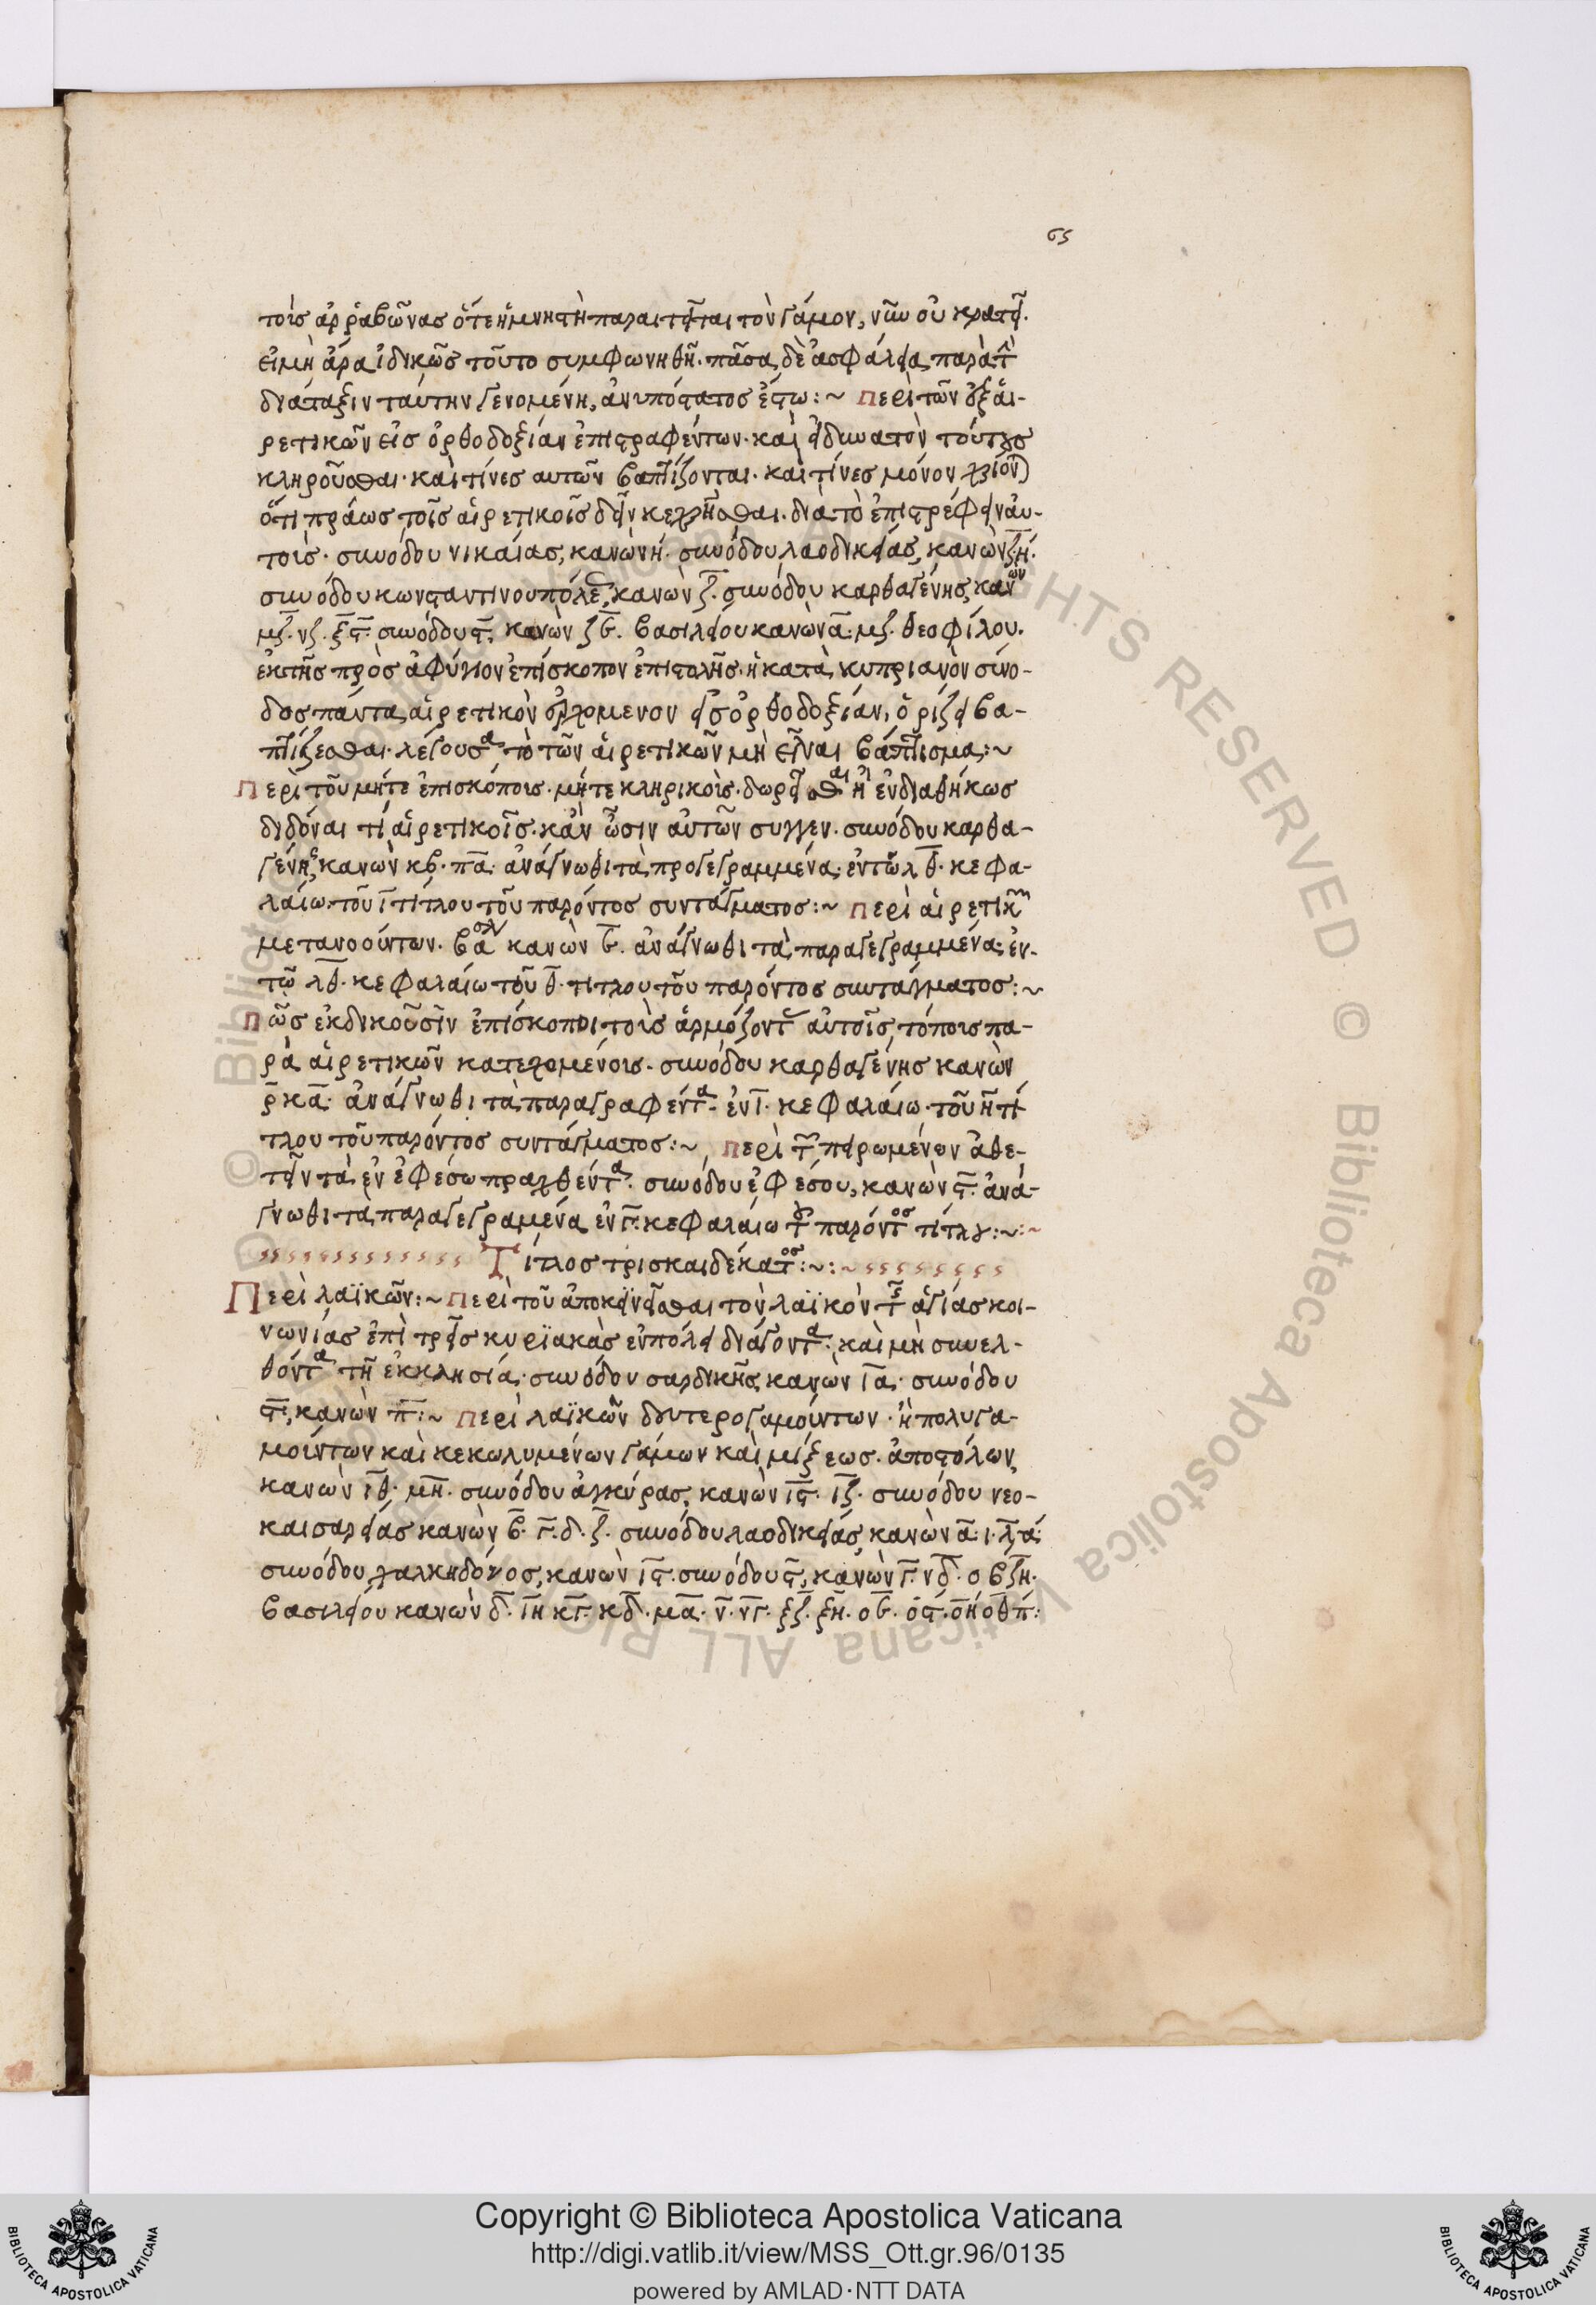 65
τοὺς ἀρραβῶνας ὅτε ἡ μνηστὴ παραιτεῖται τὸν γάμον, νῦν οὐ κρατεῖ.
εἰ μὴ ἄρα ἰδικῶς τοῦτο συμφωνηθῆ. πᾶσα δὲ ἀσφάλεια παρὰ τὴν
διάταξιν ταύτην γενομένη, ἀνυπόστατος ἔστω :~ Περὶ τῶν ἐξ αἱ-
ρετικῶν εἰς ὀρθοδοξίαν ἐπιστραφέντων. καὶ εἰ δυνατὸν τούτους
κληροῦσθαι. καὶ τίνες αυτῶν βαπτίζονται. καὶ τίνες μόνον χρίονται
ὅτι πράως τοῖς αἱρετικοῖς δεῖν κεχρῆσθαι. διὰ τὸ ἐπιστρέφειν αὐ-
τοὺς. συνόδου νικαίας, κανὼν η. συνόδου λαοδικείας, κανὼν ζ η.
συνόδου κωνσταντινουπόλεως, κανὼν ζ. συνόδου καρθαγένης, κανὼν
μζ. νζ. ξς. συνόδου ς, κανὼν ζβ. βασιλείου κανὼν α. μζ. θεοφίλου.
ἐκ τῆς πρὸς ἀφύγγιον ἐπίσκοπον ἐπιστολῆς. ἡ κατὰ κυπριανὸν σύνο-
δος πάντα αἱρετικὸν ἐρχόμενον εἰς ὀρθοδοξίαν, ὁρίζει βα-
πτίζεσθαι. λέγουσα, τὸ τῶν αἱρετικῶν μὴ εἶναι βάπτισμα :~
Περὶ τοῦ μήτε ἐπισκόποις. μήτε κληρικοὺς. δωρεῖσθαι ἢ ἐνδιαθήκως
διδόναι τί αἱρετικοῖς. κἂν ὦσιν αὐτῶν συγγεν. συνόδου καρθα-
γένης, κανὼν κβ. πα. ἀνάγνωθι τὰ προγεγραμμένα. ἐν τῶ λθ. κεφα-
λαίω. τοῦ ι τίτλου τοῦ παρόντος συντάγματος :~ Περὶ αἱρετικῶν
μετανοούντων. βασιλ κανὼν β. ἀνάγνωθι τὰ παραγεγραμμένα. ἐν
τῶ λθ. κεφαλαίω τοῦ θ. τιτλου τοῦ παρόντος συντάγματος :~
Πῶς ἐκδικοῦσϊν ἐπίσκοποι τοὺς ἁρμόζοντας αὐτοῖς τόπους πα-
ρὰ αἱρετικῶν κατεχομένους. συνόδου καρθαγένης κανὼν
ρκα. ἀνάγνωθι τὰ παραγραφέντα. ἐν ι. κεφαλαίω. τοῦ η τί
τλου τοῦ παρόντος συντάγματος :~ Περὶ τῶν πειρωμένων ἀθε-
τεῖν τὰ ἐν ἐφέσω πραχθέντα. συνόδου ἐφέσου, κανὼν ς. ἀνά-
γνωθι τὰ παραγεγραμένα ἐν γ. κεφαλαίω τοῦ παρόντος τίτλου :~:~
Τίτλος τρισκαιδέκατος :~:~
Περὶ λαϊκῶν :~ Περὶ τοῦ ἀποκεϊνεῖσθαι τὸν λαϊκὸν τῆς ἁγίας κοι-
νωνίας ἐπὶ τρεῖς κυρϊακὰς ἐν πόλει διάγοντα. καὶ μὴ συνελ-
θόντα τῆ ἐκκλησία. συνόδου σαρδικῆς κανὼν ια. συνόδου
ς, κανὼν π :~ Περὶ λαϊκῶν δευτερογαμούντων. ἢ πολυγα-
μούντων καὶ κεκωλυμένων γάμων καὶ μίξεως. ἀποστόλων,
κανὼν ιθ. μη. συνόδου ἀγκύρας, κανὼν ις. ιζ. συνόδου νεο-
καισαρείας κανὼν β. γ. δ. ζ. συνόδου λαοδικείας, κανὼν α. ι. λα.
συνόδου χαλκηδόνος, κανὼν ις. συνόδου ς, κανὼν γ. νδ. ο βζη.
βασιλείου κανὼν δ. ιη κγ. κδ. μα. ν. νγ. ξζ. ξη. οβ. ος. οη οθ π :
Copyright © Biblioteca Apostolica Vaticana
http://digi.vatlib.it/view/MSS_Ott.gr.96/0135
powered by AMLAD·NTT DATA